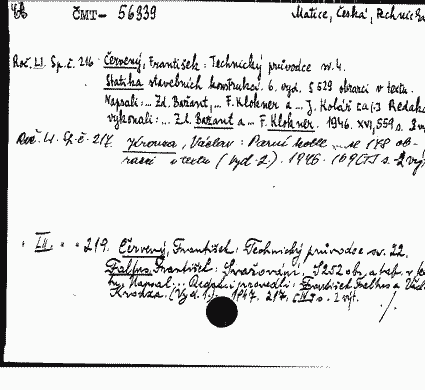 ČMT - 56939 Matice, Česká, technická
Roč. LI. Sp. č. 216 Červený, František: Technický průvodce sv. 4.
Statika stavebních konstrukcí. 6. vyd. S 529 obrazci v textu.
Napsali: ... Zd. Bažant, ... F. Klokner a ... J. Kolář [a j.] Redakci
vykonali: ... Zd. Bažant a ... F. Klokner. 1946. XVI, 559 s.
Roč. LI. Sp. č. 217. Krouza, Václav: Parní kotle ... se 178 ob-
razci v textu (Vyd. 2.). 1946. 169 s.
" LII. " " 219. Červený, František: Technický průvodce sv. 22.
Falhs. František: Svařování, S 252 obr. a
Napsal ... Redakci provedli: František a
Krouza. (Vyd. 1.). 1947. 217, s.